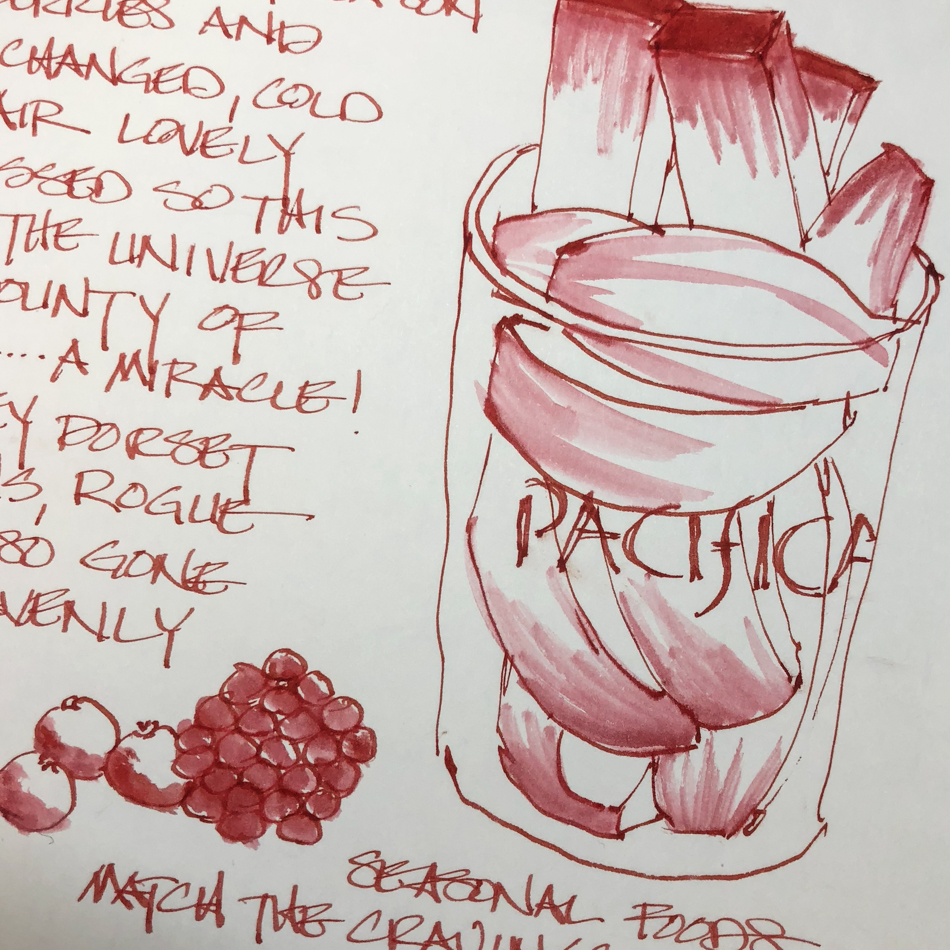 AND
CHANGED, COLD
AIR LOVELY
SSED SO THIS
THE UNIVERSE
OUNTY OF
....A MIRACLE!
EY DORSET
S, ROGUE
SO GONE
VENLY
PACIFICA
SEASONAL FOODS
MATCH THE CRAVINGS